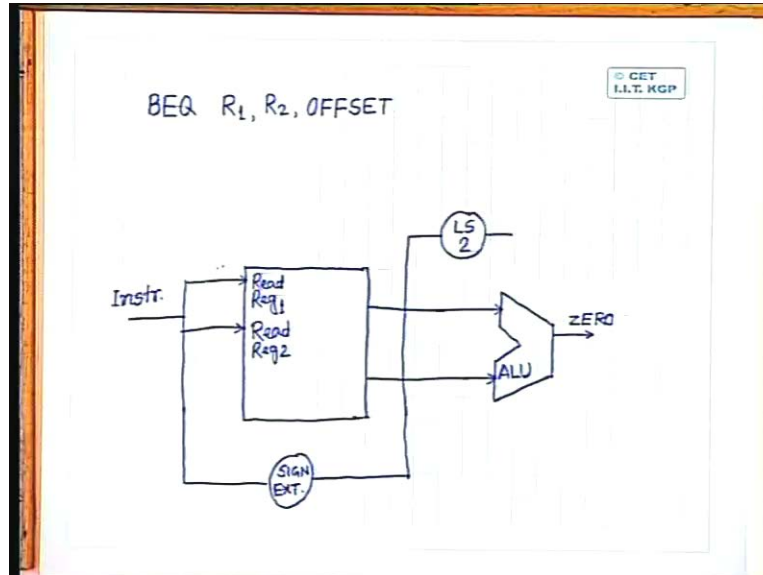 © CET
I.I.T. KGP
BEQ R1, R2, OFFSET
LS
2
Instr.
Read
Reg1
Read
Reg2
ZERO
ALU
SIGN
EXT.